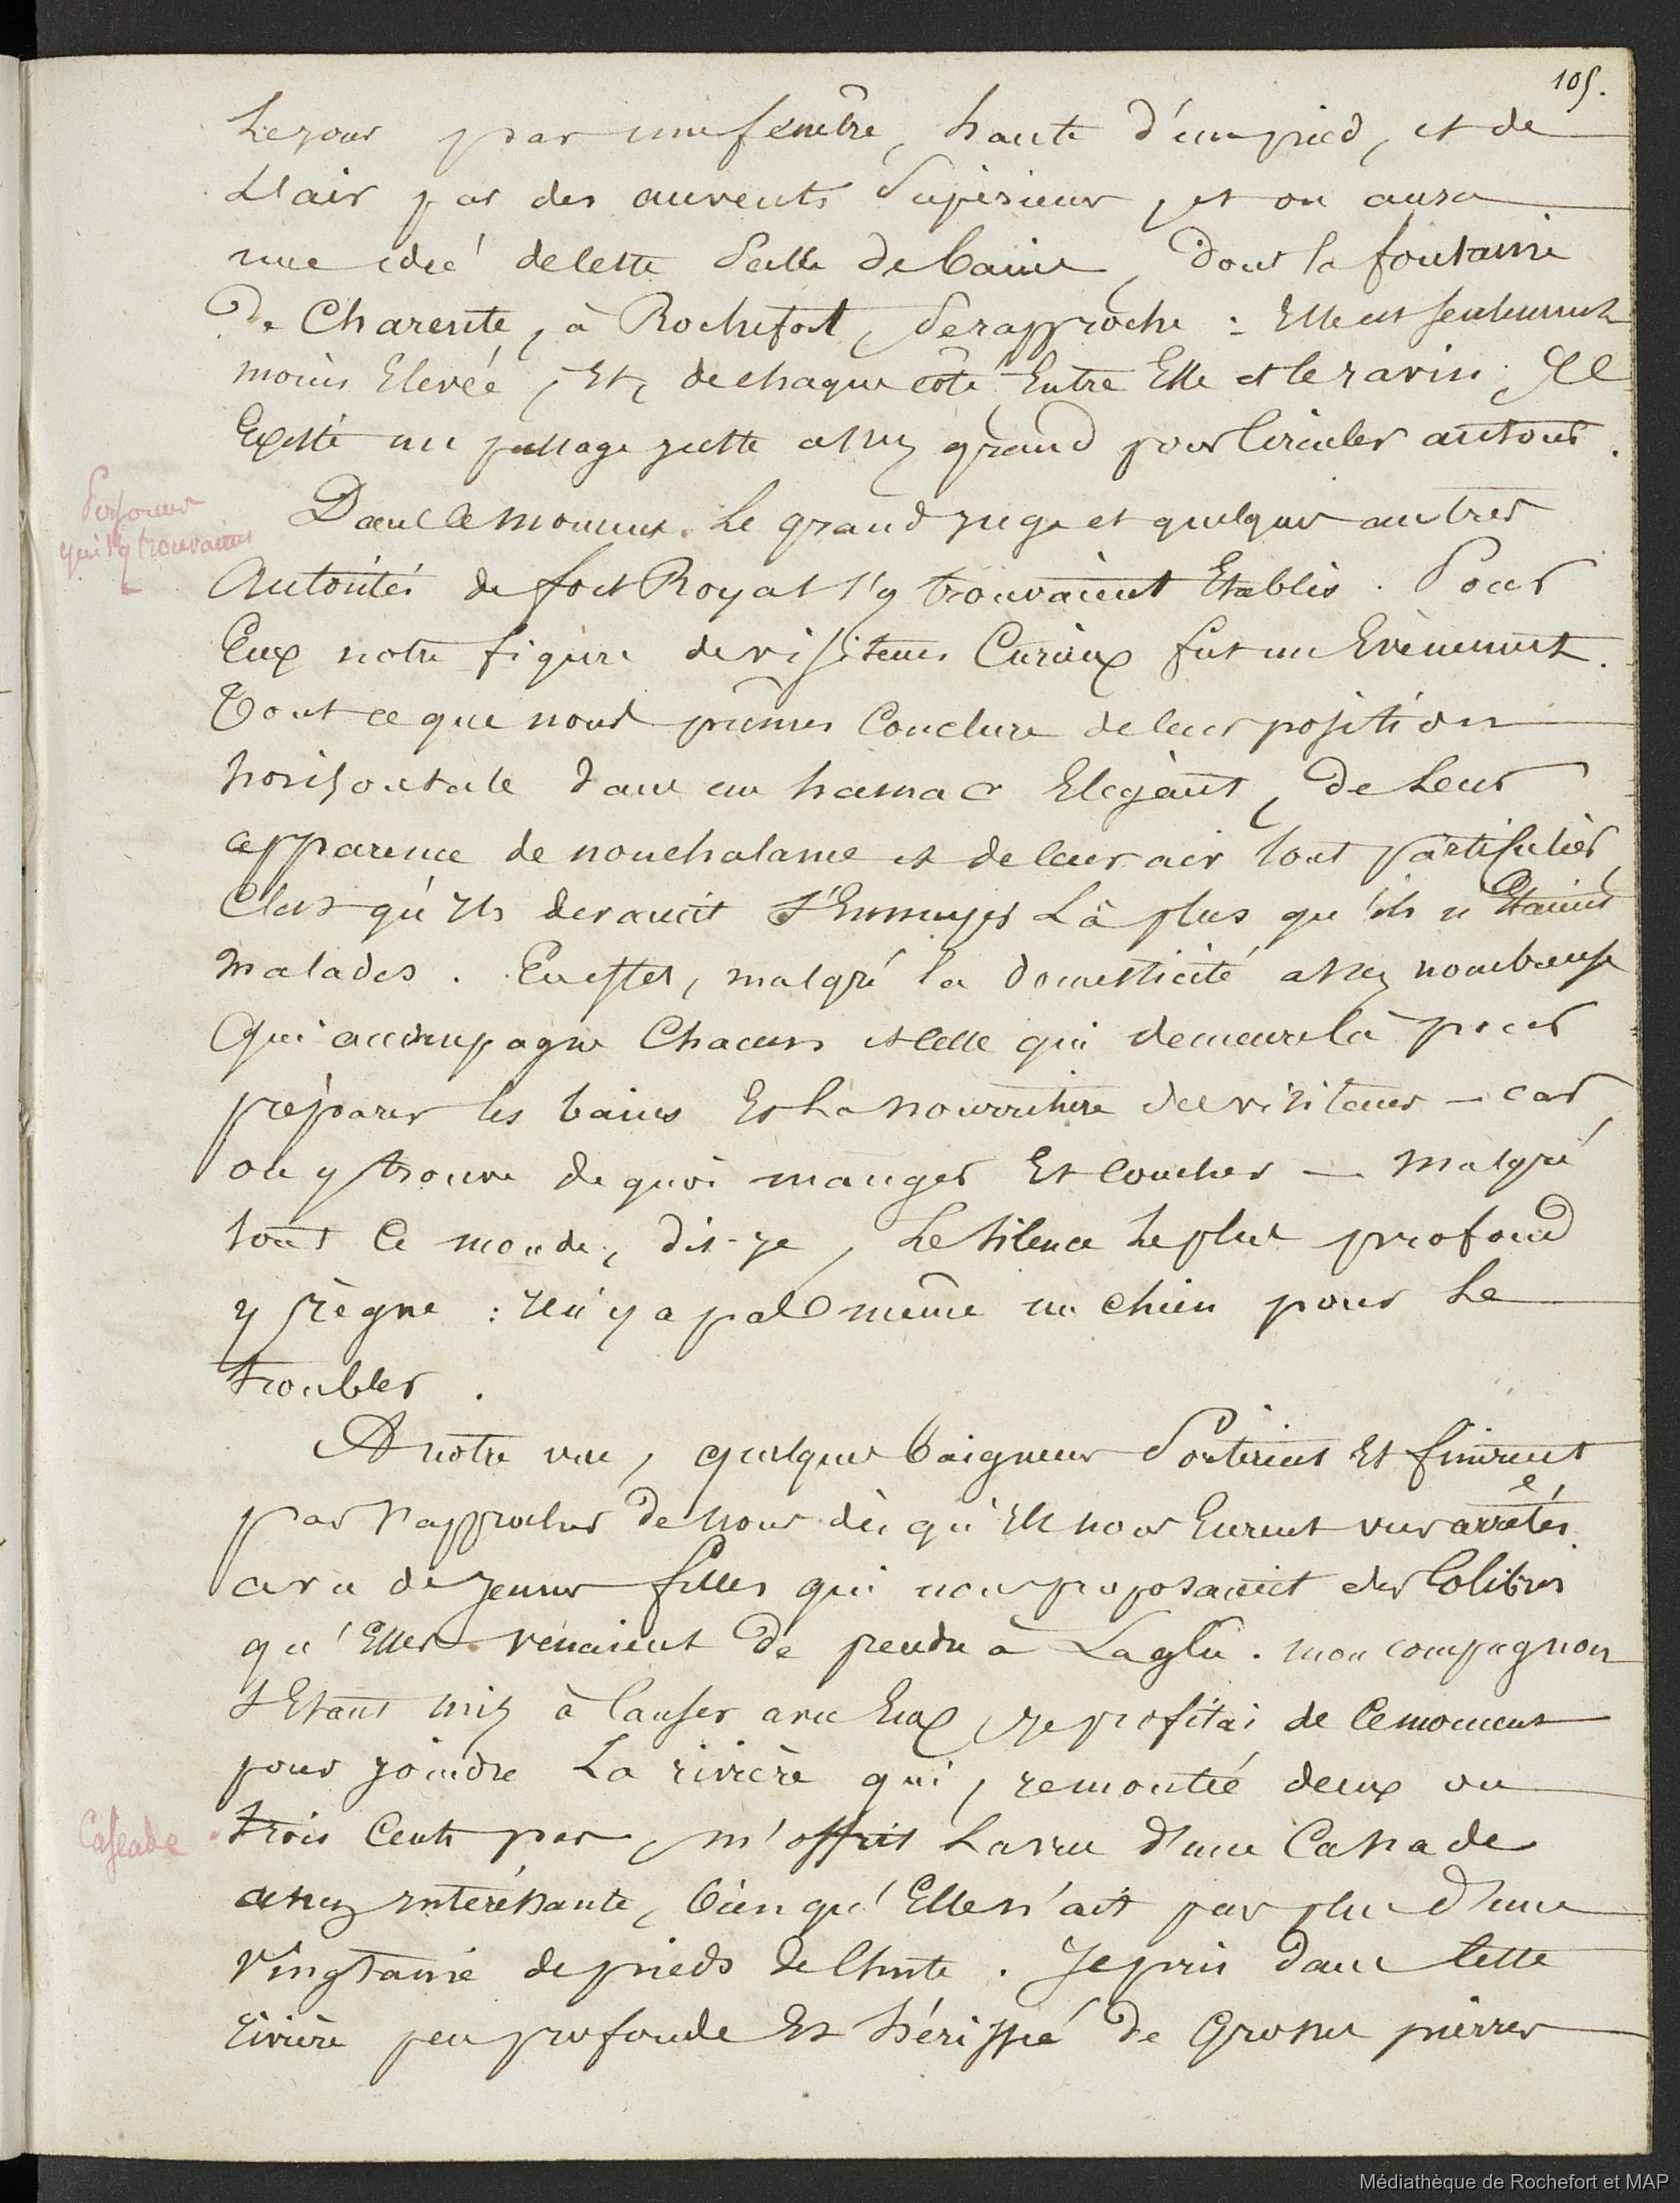 105.
Le jour par une fenêtre, haute d'un pied, et de
L'air par des auvents Supérieur, et on aura
une idée de cette Salle de bains, dont la fontaine
De Charente, à Rochefort, Se rapproche : Elle est seulement
moins Elevée, Et, de chaque côté Entre Elle et le ravin, Il
Existe un passage juste assez grand pour Circuler autour.
Personnes
qui s'y trouvaient
Dans ce moment. Le grand juge et quelques autres
Autorités de fort Royal s'y trouvaient Etablis. Pour
Eux notre figure de visiteurs Curieux fut un Evènement.
Tout ce que nous pûmes Conclure de leur position
horisontale dans un hamac Elégant, De Leur
apparence de nonchalance et de leur air tout particulier,
C'est qu'ils devaient s'Ennuyer Là plus qu'ils n'Etaient
malades. En effet, malgré la domesticité assez nombreuse
Qui accompagne Chacun et Celle qui demeure là pour
préparer les bains Et La nourriture des visiteurs – car,
on y trouve de quoi manger Et Coucher – malgré
tout Ce monde, dis-je, Le Silence Le plus profond
y règne : Il n'y a pas même un chien pour Le
troubler.
A notre vue, quelques baigneurs Sortirent Et finirent
par s'approcher De nous dès qu'Ils nous Eurent vus arrêtés
avec de jeunes filles qui nous proposaient des Colibris
qu'Elles venaient De prendre à La glu. mon compagnon
s'Etant mis à Causer avec Eux, je profitai de Ce moment
pour joindre La rivière qui, remontée deux ou
Cascade
trois Cents pas, m'offrit La vue d'une Cascade
assez intéressante, bien qu'Elle n'ait pas plus d'une
Vingtaine de pieds de Chute. Je pris dans Cette
rivière peu profonde Et hérissée De Grosses pierres
Médiathèque de Rochefort et MAP